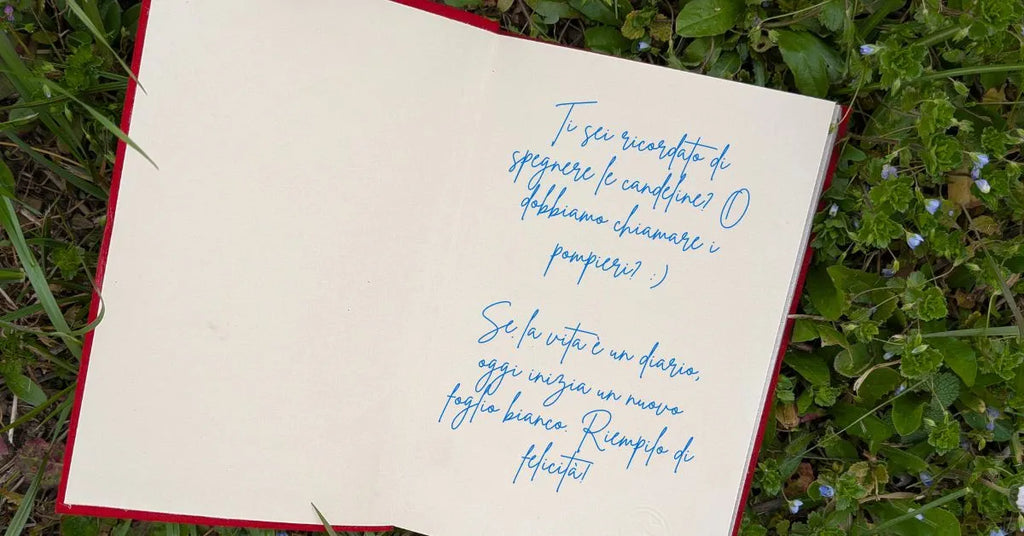 Ti sei ricordato di
spegnere le candeline? O
dobbiamo chiamare i
pompieri? :)
Se la vita è un diario,
oggi inizia un nuovo
foglio bianco. Riempilo di
felicità!